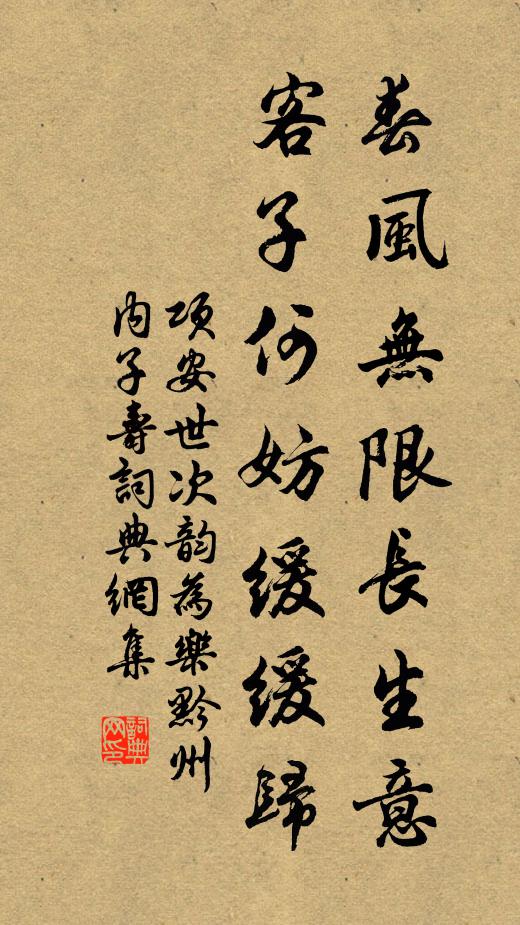 春風無限長生意
客子何妨緩緩歸
項安世次韵為樂黔州
内子壽詞典網集
詞典
网印